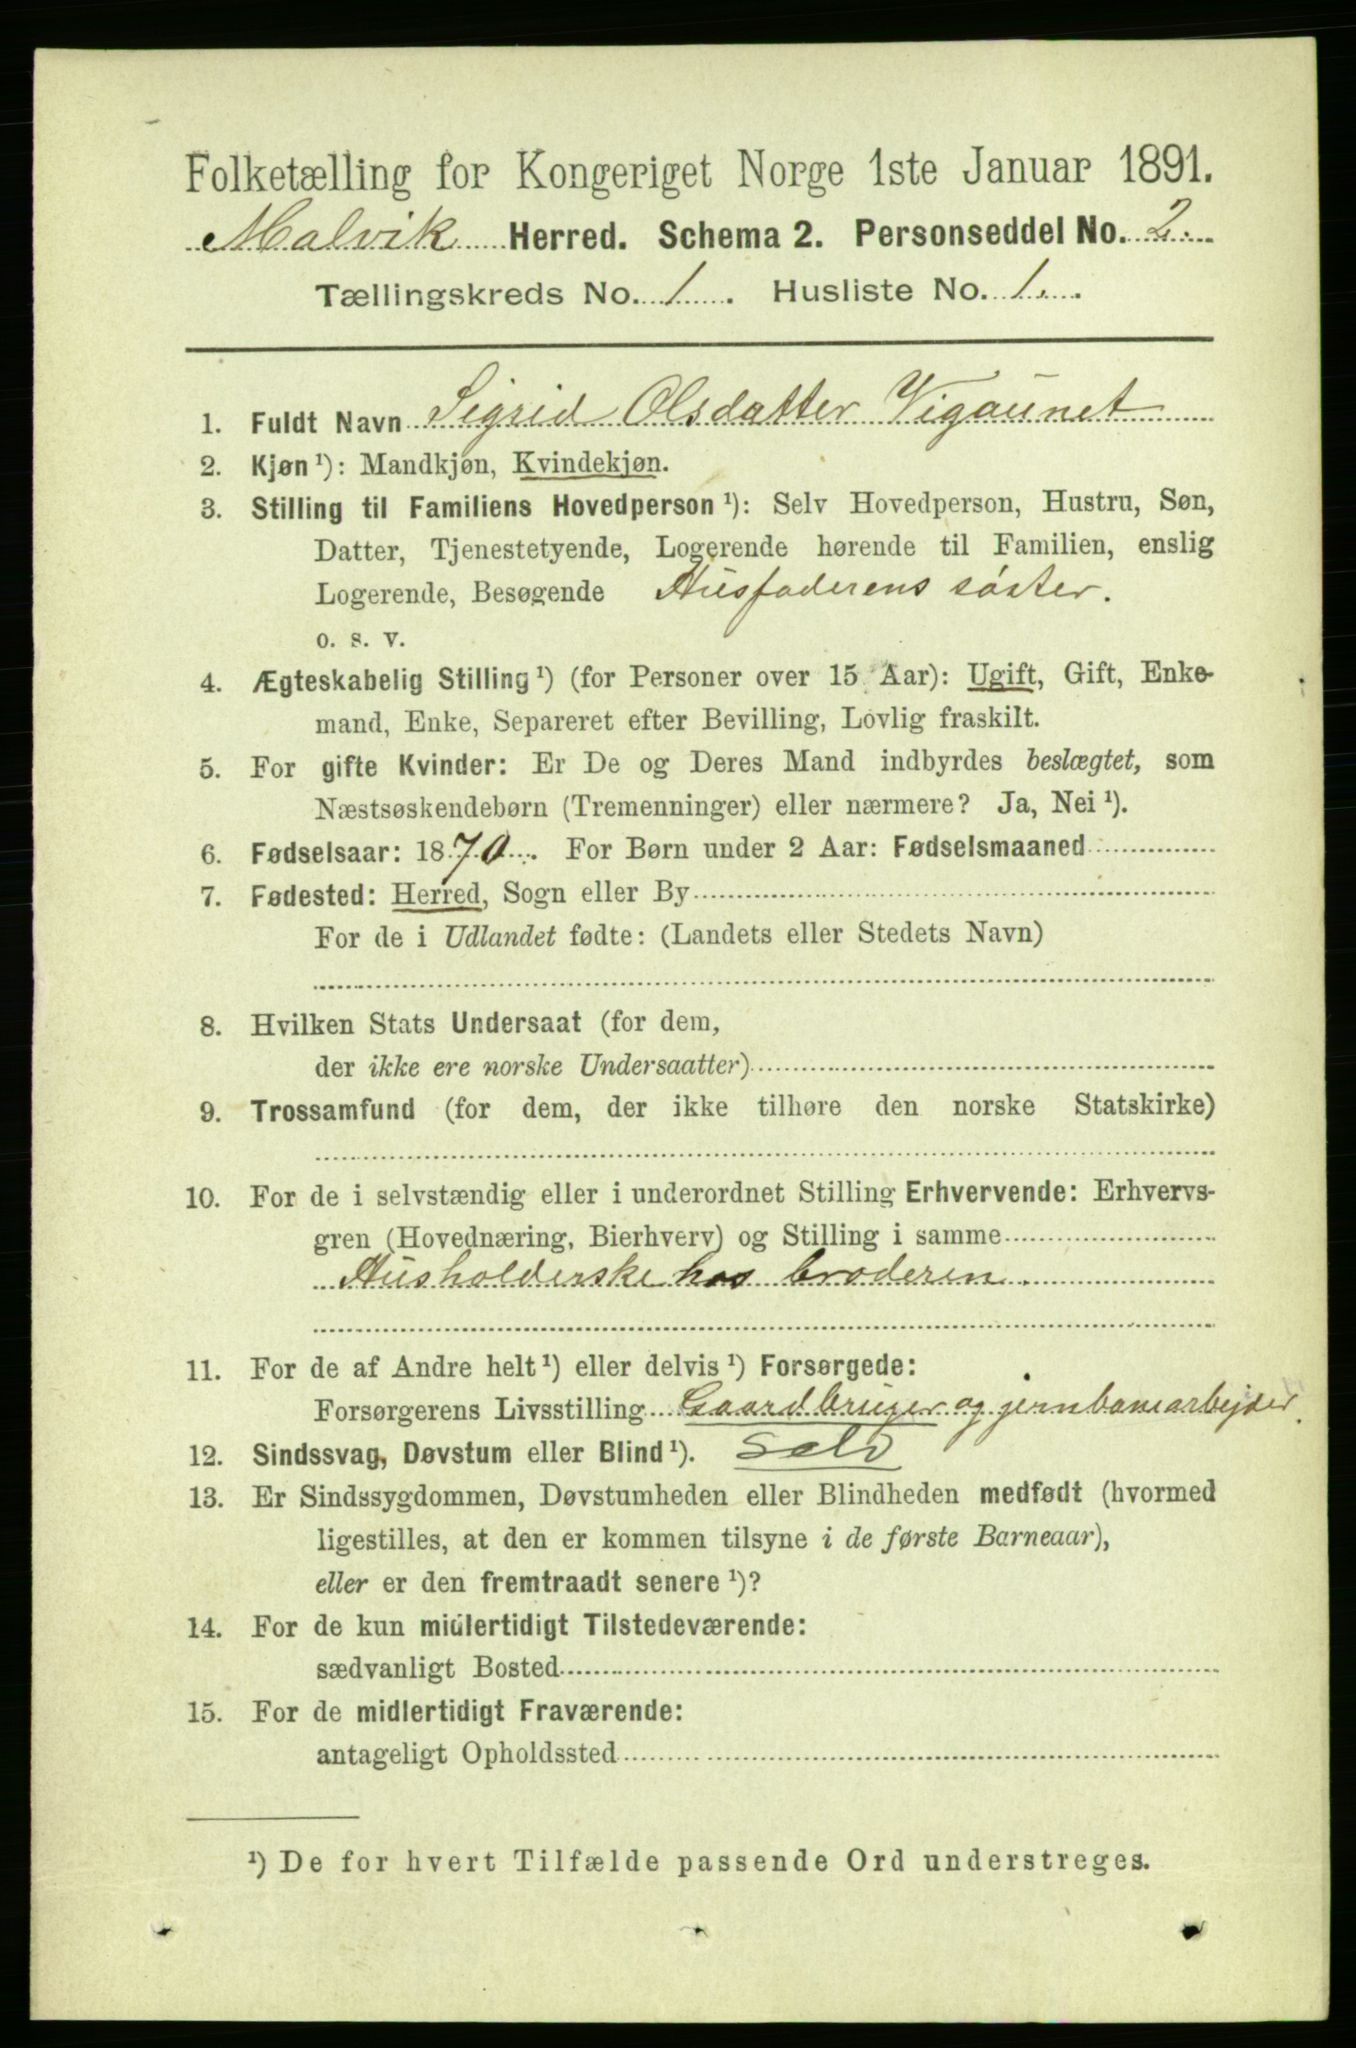 Folketælling for Kongeriget Norge 1ste Januar 1891.
Malvik Herred. Schema 2. Personseddel No. 2.
Tællingskreds No. 1. Husliste No. 1.
1. Fuldt Navn Sigrid Olsdatter Vigaunet
2. Kjøn ¹): Mandkjøn, Kvindekjøn.
3. Stilling til Familiens Hovedperson ¹): Selv Hovedperson, Hustru, Søn,
Datter, Tjenestetyende, Logerende hørende til Familien, enslig
Logerende, Besøgende Husfaderens søster.
o. s. v.
4. Ægteskabelig Stilling ¹) (for Personer over 15 Aar): Ugift, Gift, Enke-
mand, Enke, Separeret efter Bevilling, Lovlig fraskilt.
5. For gifte Kvinder: Er De og Deres Mand indbyrdes beslægtet, som
Næstsøskendebørn (Tremenninger) eller nærmere? Ja, Nei ¹).
6. Fødselsaar: 1870. For Børn under 2 Aar: Fødselsmaaned
7. Fødested: Herred, Sogn eller By
For de i Udlandet fødte: (Landets eller Stedets Navn)
8. Hvilken Stats Undersaat (for dem,
der ikke ere norske Undersaatter)
9. Trossamfund (for dem, der ikke tilhøre den norske Statskirke)
10. For de i selvstændig eller i underordnet Stilling Erhvervende: Erhvervs-
gren (Hovednæring, Bierhverv) og Stilling i samme
Husholderske hos broderen.
11. For de af Andre helt ¹) eller delvis ¹) Forsørgede:
Forsørgerens Livsstilling Gaardbruger og jernbanearbejder.
12. Sindssvag, Døvstum eller Blind ¹). Selv
13. Er Sindssygdommen, Døvstumheden eller Blindheden medfødt (hvormed
ligestilles, at den er kommen tilsyne i de første Barneaar),
eller er den fremtraadt senere ¹)?
14. For de kun midlertidigt Tilstedeværende:
sædvanligt Bosted
15. For de midlertidigt Fraværende:
antageligt Opholdssted
¹) De for hvert Tilfælde passende Ord understreges.